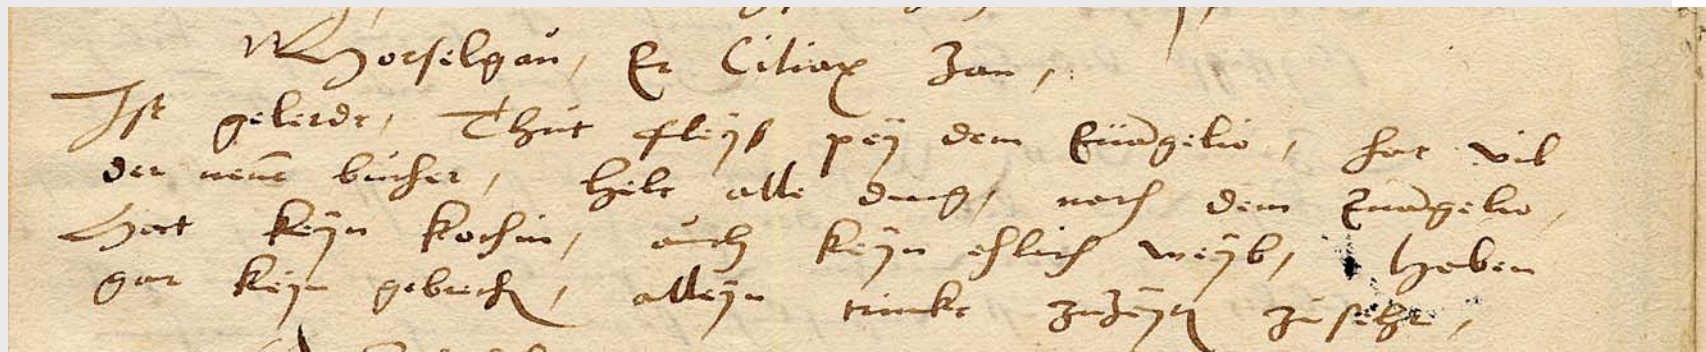 Horselgau, Er Ciliax Zan,
Ist gelerdt, Thut fleyß pey dem Euangelio, hat vil
der neuen bucher, helt alle ding, nach dem Euangelio,
Hatt keyn kochin, auch keyn ehlich weyb, haben
gar keyn gebrech, alleyn trinkt zuzeyt zusehr,